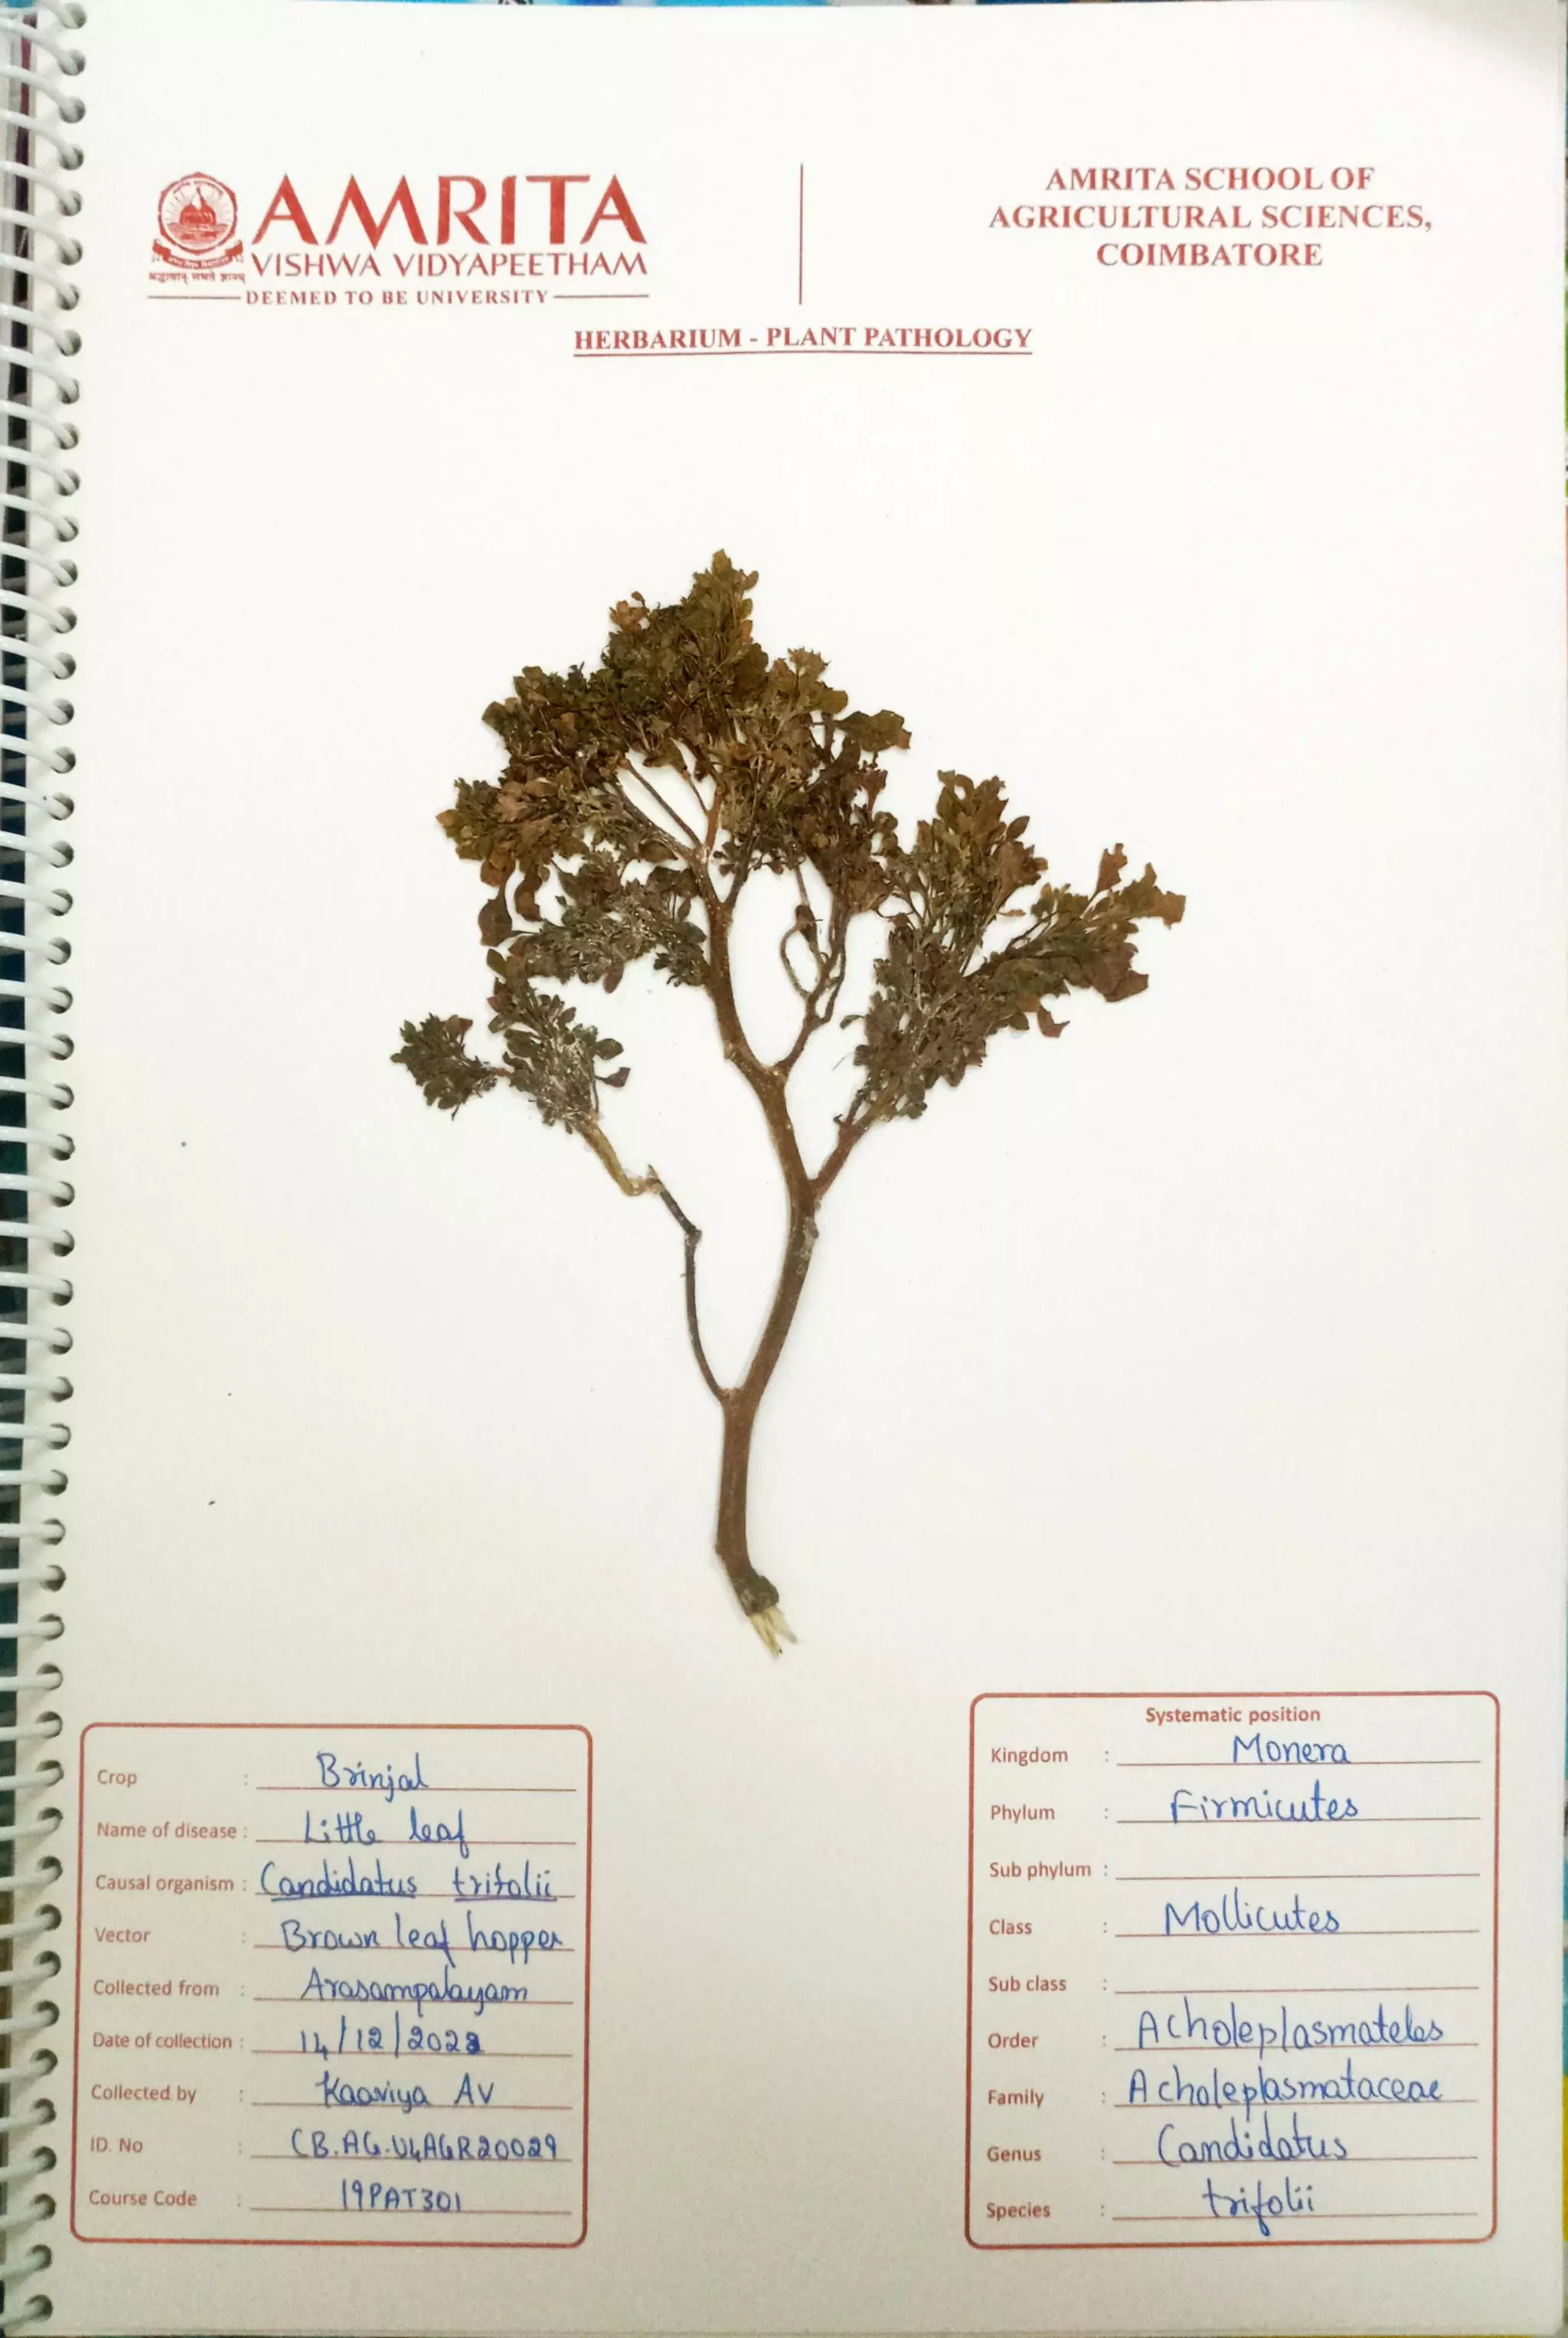 AMRITA
VISHWA VIDYAPEETHAM
DEEMED TO BE UNIVERSITY
श्रद्धावान् लभते ज्ञानम्
AMRITA SCHOOL OF
AGRICULTURAL SCIENCES,
COIMBATORE
HERBARIUM - PLANT PATHOLOGY
Crop : Brinjal
Name of disease : Little leaf
Causal organism : Candidatus trifolii
Vector : Brown leaf hopper
Collected from : Arasampalayam
Date of collection : 14/12/2022
Collected by : Kaaviya AV
ID. No : CB.AG.U4AGR20029
Course Code : 19PAT301
Systematic position
Kingdom : Monera
Phylum : Firmicutes
Sub phylum :
Class : Mollicutes
Sub class :
Order : Acholeplasmateles
Family : Acholeplasmataceae
Genus : Candidatus
Species : trifolii